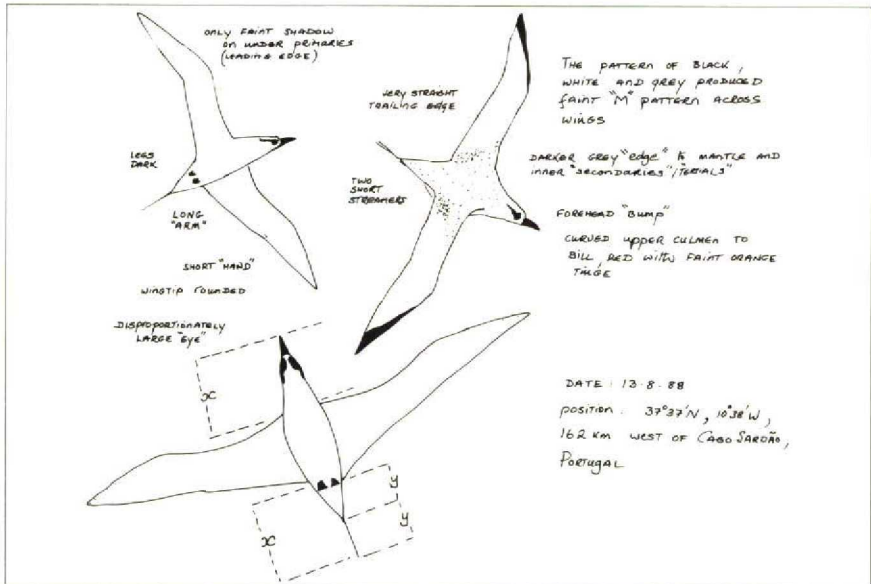 ONLY FAINT SHADOW
ON UNDER PRIMARIES
(LEADING EDGE)
LEGS
DARK
LONG
"ARM"
SHORT "HAND"
WINGTIP ROUNDED
VERY STRAIGHT
TRAILING EDGE
TWO
SHORT
STREAMERS
THE PATTERN OF BLACK,
WHITE AND GREY PRODUCED
FAINT "M" PATTERN ACROSS
WINGS
DARKER GREY "edge" to MANTLE AND
INNER "SECONDARIES"/"TERIALS"
FOREHEAD "BUMP"
CURVED UPPER CULMEN TO
BILL, RED WITH FAINT ORANGE
TINGE
DISPROPORTIONATELY
LARGE "EYE"
x
x
y
y
DATE: 13·8·88
POSITION: 37°37'N, 10°38'W,
162 KM WEST OF CABO SARDÃO,
PORTUGAL